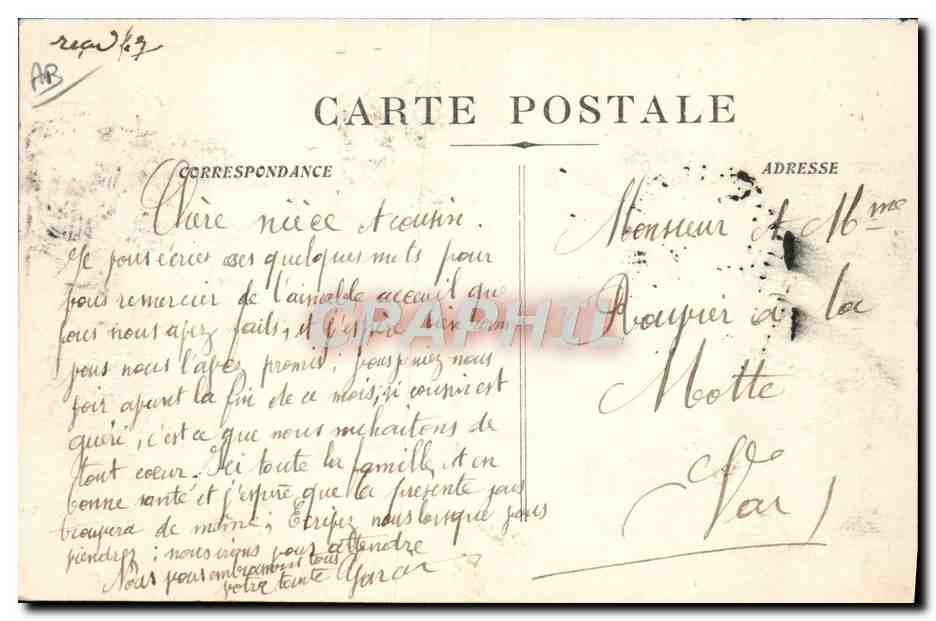 AB
CARTE POSTALE
CORRESPONDANCE
ADRESSE
Chère nièce et cousin.
Je vous écries ses quelques mots pour
vous remercier de l'aimable acceuil que
vous nous avez faits, et j'espère bien comm
vous nous l'avez promis, vous venez nous
voir avant la fin de ce mois, si cousin est
quéri, c'est ce que nous suhaitons de
tout coeur. Ici toute la famille et en
bonne santé et j'espère que la présente vous
trouvera de même; Ecrivez nous lorsque vous
viendrez; nous irons vous attendre
Nous vous embrassons tous
votre tante
Monsieur et Mme
Rouvier à la
Motte
Var
CPAPHIL